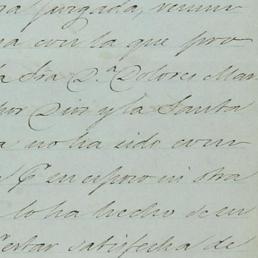 ra juzgada, renun
na con la que pro
la Sra D.ª Dolores Mar
por Dios y la Santa
a no ha sido com
su esposo ni otra
lo ha hecho de su
estar satisfecha de